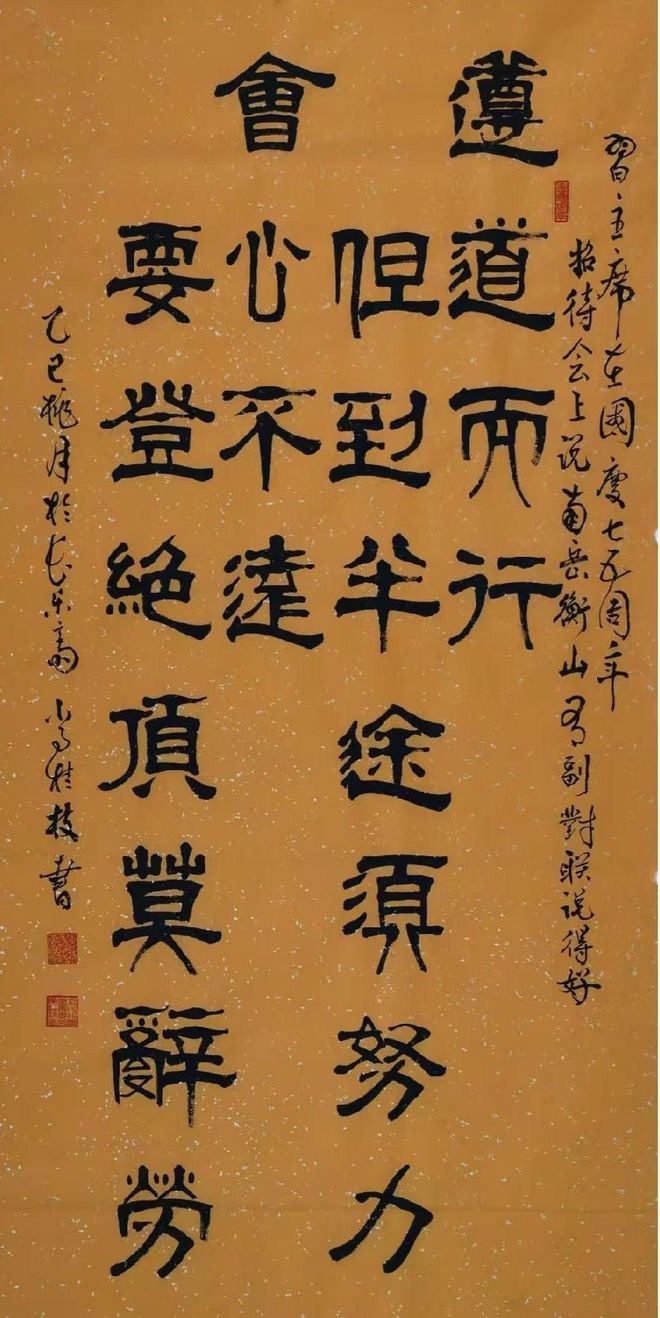 習主席在國慶七五周年
招待会上说南岳衡山有副對联说得好
遵道而行
但到半途須努力
會心不遠
要登絕頂莫辭勞
乙巳桃月於长乐斋 桂枝書